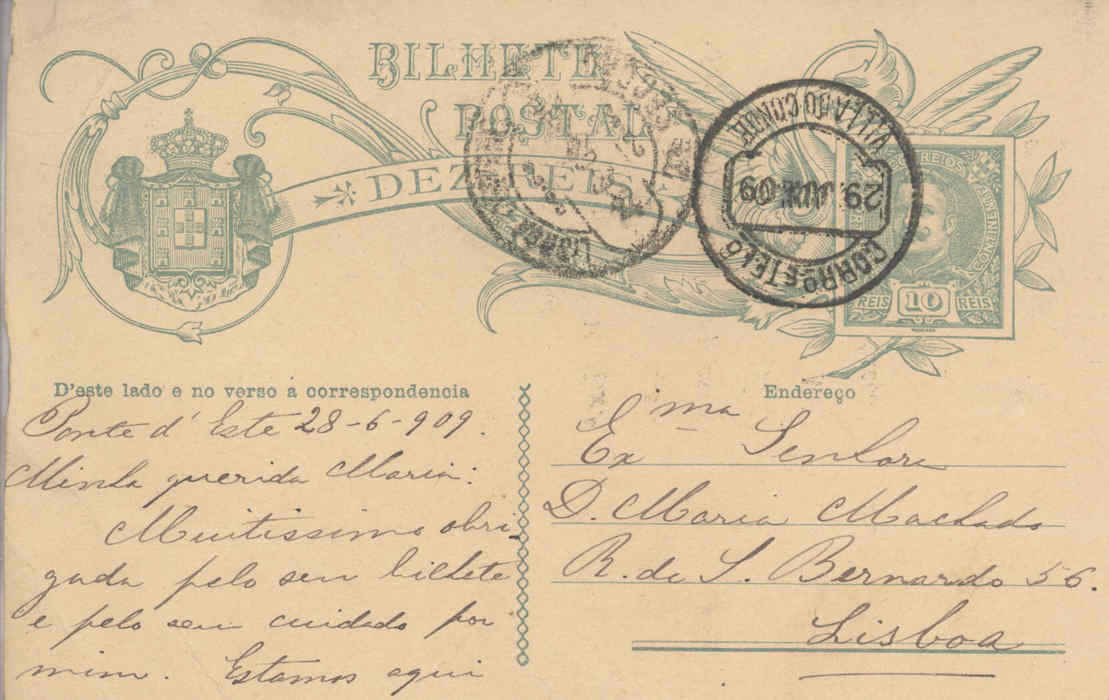 BILHETE
POSTAL
DEZ REIS
LISBOA
VILLA DO CONDE
29. JUN. 09
CORRO E TELO
CORREIOS
CONTINENTE
REIS 10 REIS
D'este lado e no verso a correspondencia
Endereço
Ponte d'Este 28-6-909.
Minha querida Maria:
Muitissimo obri-
gada pelo seu bilhete
e pelo seu cuidado por
mim. Estamos aqui
Exma Senhora
D. Maria Machado
R. de S. Bernardo 56.
Lisboa